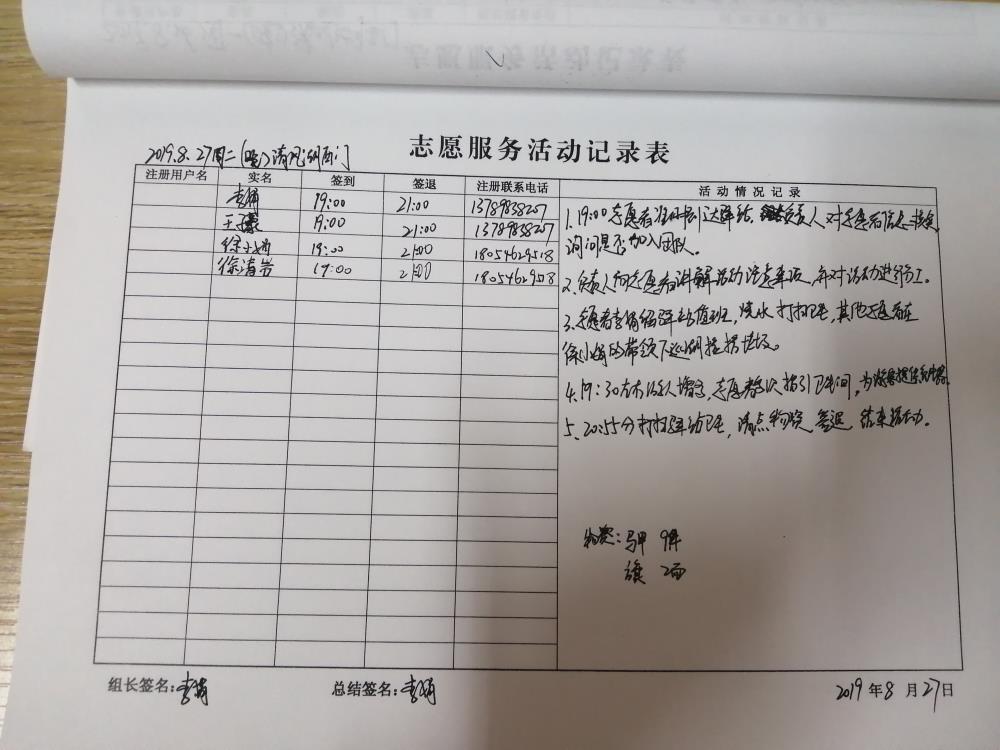 志愿服务活动记录表
2019.8.27周二(晚)清风湖西门
注册用户名 实名 签到 签退 注册联系电话 活动情况记录
李娟 19:00 21:00 13789838207
王 19:00 21:00 13789838207
徐小娟 19:00 21:00 18054629518
徐清岩 19:00 21:00 18054629518
1.19:00志愿者准时到达驿站,负责人对志愿者信息
询问是否加入团队。
2.负责人向志愿者讲解活动注意事项,并对活动进行分工。
3.志愿者李娟留驿站值班,烧水打扫卫生,其他志愿者在
徐小娟的带领下巡湖捡拾垃圾。
4.19:30左右游人增多,志愿者多次指引卫生间,为游客提供
5.20:55分打扫驿站卫生,清点物资,签退,结束活动。
物资:马甲 9件
旗 2面
组长签名:李娟 总结签名:李娟 2019年8月27日